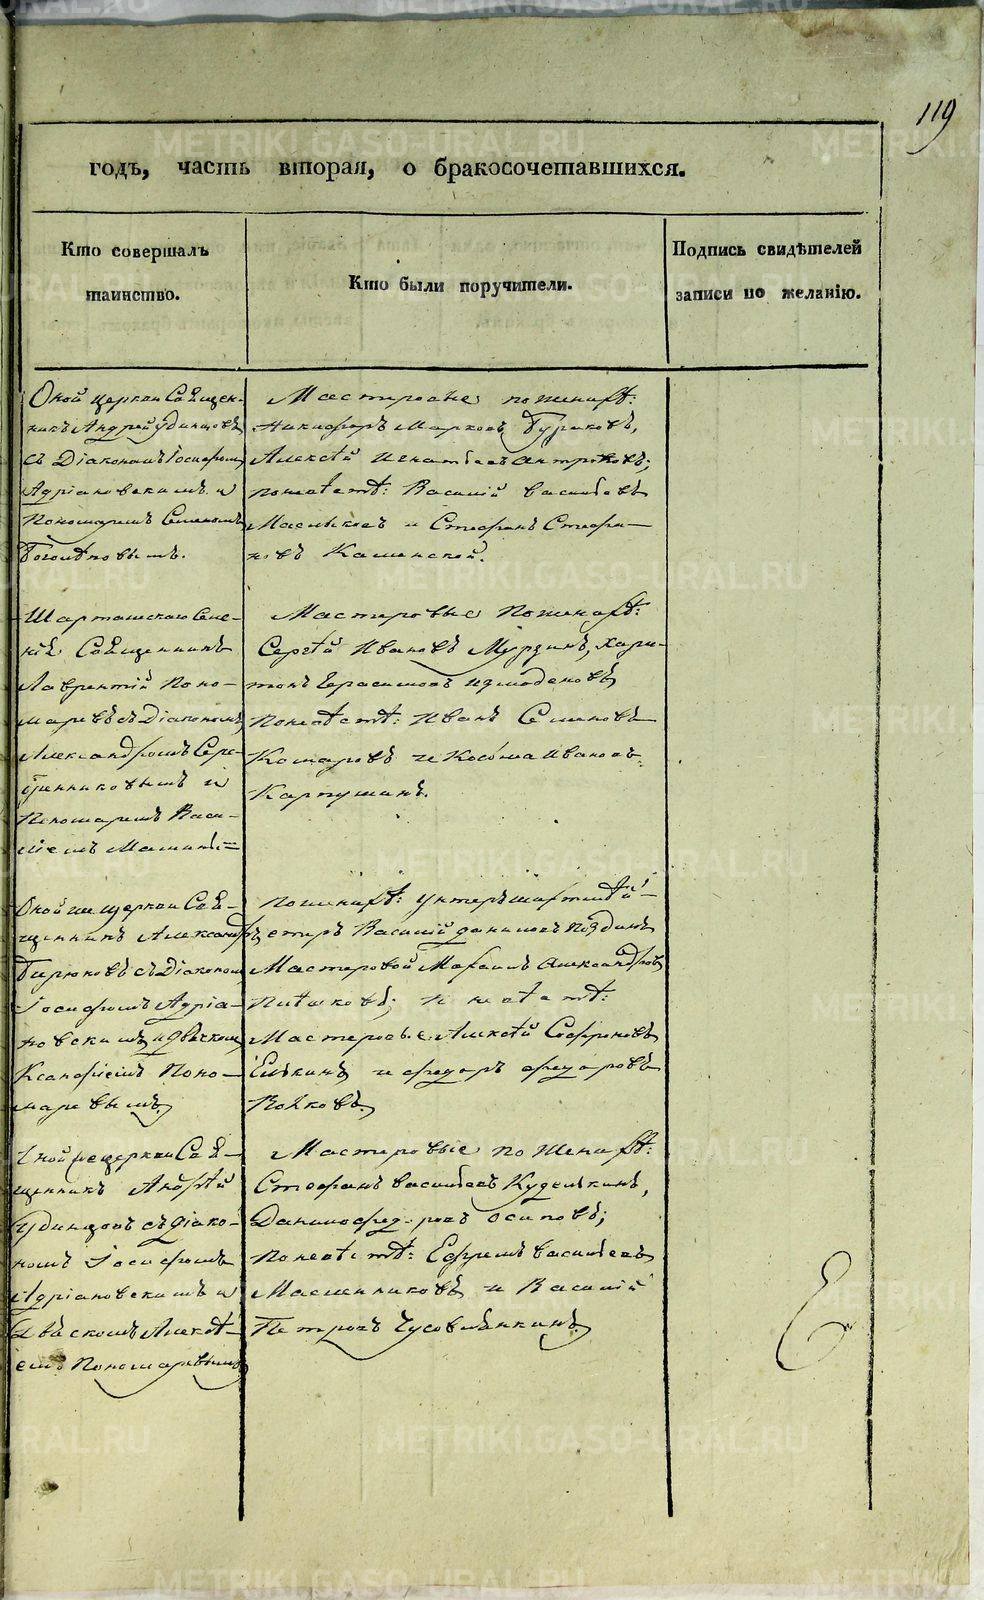 119
годъ, часть вторая, о бракосочетавшихся.
Кто совершалъ
таинство.
Кто были поручители.
Подпись свидѣтелей
записи по желанію.
Оной церкви Священ-
никъ Андрей Удинцовъ
съ Діакономъ Іосифомъ
Адріановскимъ и
Пономаремъ Семеномъ
Боголѣповымъ.
Мастеровые по женихѣ:
Никифоръ Марковъ Бураковъ,
Алексѣй Игнатьевъ
по невѣстѣ: Василій Васильевъ
и Стефанъ Стефа-
новъ Каменской.
Шарташской Сѣне-
Священникъ
Лаврентій Поно-
маревъ съ Діакономъ
Александромъ Сере-
бренниковымъ и
Пономаремъ Васи-
ліемъ
Мастеровые по женихѣ:
Сергѣй Ивановъ Мурзинъ, Хари-
тонъ Герасимовъ Измоденовъ
по невѣстѣ: Иванъ Семеновъ
Комаровъ и Косьма Ивановъ
Карпушинъ.
Оной же церкви Свя-
щенникъ Александръ
Бирюковъ съ Діакономъ
Іосифомъ Адріа-
новскимъ и Дьячкомъ
Ксенофонтомъ Поно-
маревымъ
по женихѣ: унтеръ шихтмей-
стеръ Василій Даниловъ
Мастеровой Александровъ
и по невѣстѣ:
Мастеровые Алексѣй Софроновъ
Елькинъ и Федоръ Федоровъ
Волковъ
Оной же церкви Свя-
щенникъ Андрей
Удинцовъ съ Діако-
номъ Іосифомъ
Адріановскимъ и
Дьячкомъ Алексѣ-
емъ Пономаревымъ
Мастеровые по женихѣ:
Стефанъ Васильевъ Куделькинъ,
Данило Федоровъ Осиповъ;
по невѣстѣ: Ефремъ Васильевъ
Масленниковъ и Василій
Петровъ Чусовлянкинъ
METRIKI.GASO-URAL.RU